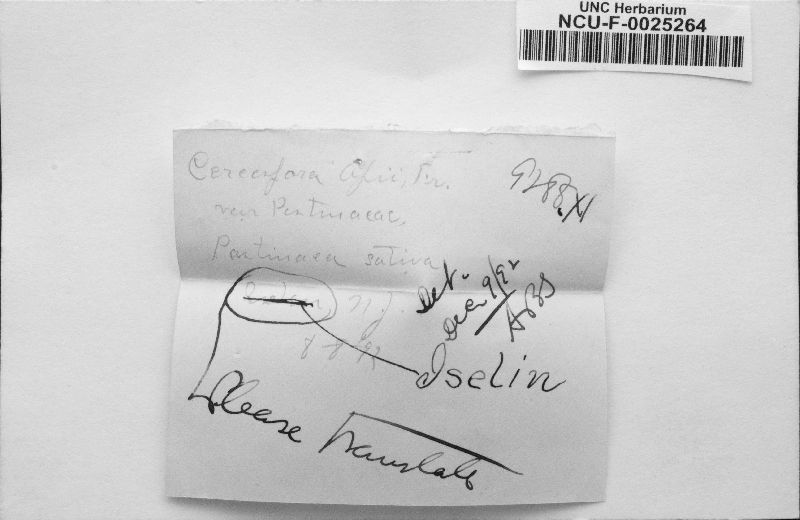 UNC Herbarium
NCU-F-0025264
Cercospora Apii, Fr.
var Pastinacae,
Pastinaca sativa
N J.
8-8-92
Det.
Dec 9/92
Iselin
Please Translate